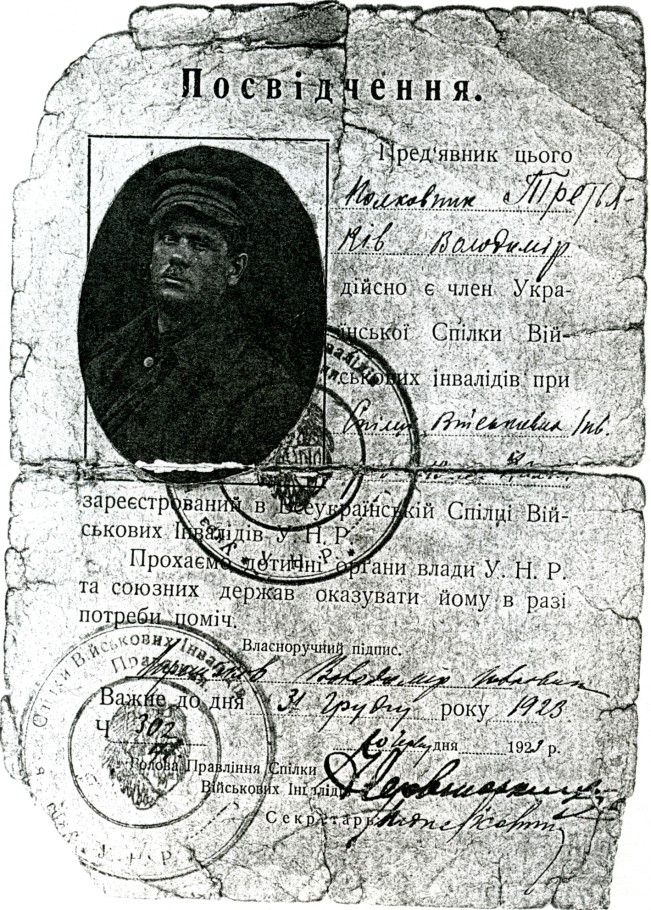 Посвідчення.
Пред'явник цього
Полковник Третья-
ків Володимір
дійсно є член Укра-
їнської Спілки Вій-
ськових інвалідів при
Спілці Військових Інв.
зареєстрований в Всеукраїнській Спілці Вій-
ськових Інвалідів У. Н. Р.
Прохаємо дотичні органи влади У. Н. Р.
та союзних держав оказувати йому в разі
потреби поміч.
Власноручний підпис.
Володимир
Важне до дня 31 Грудня року 1923.
Ч 302
дня 1923 р.
Голова Правління Спілки
Військових Інвалідів
Секретарь
Спілки Військових Інвалідів
У. Н. Р.